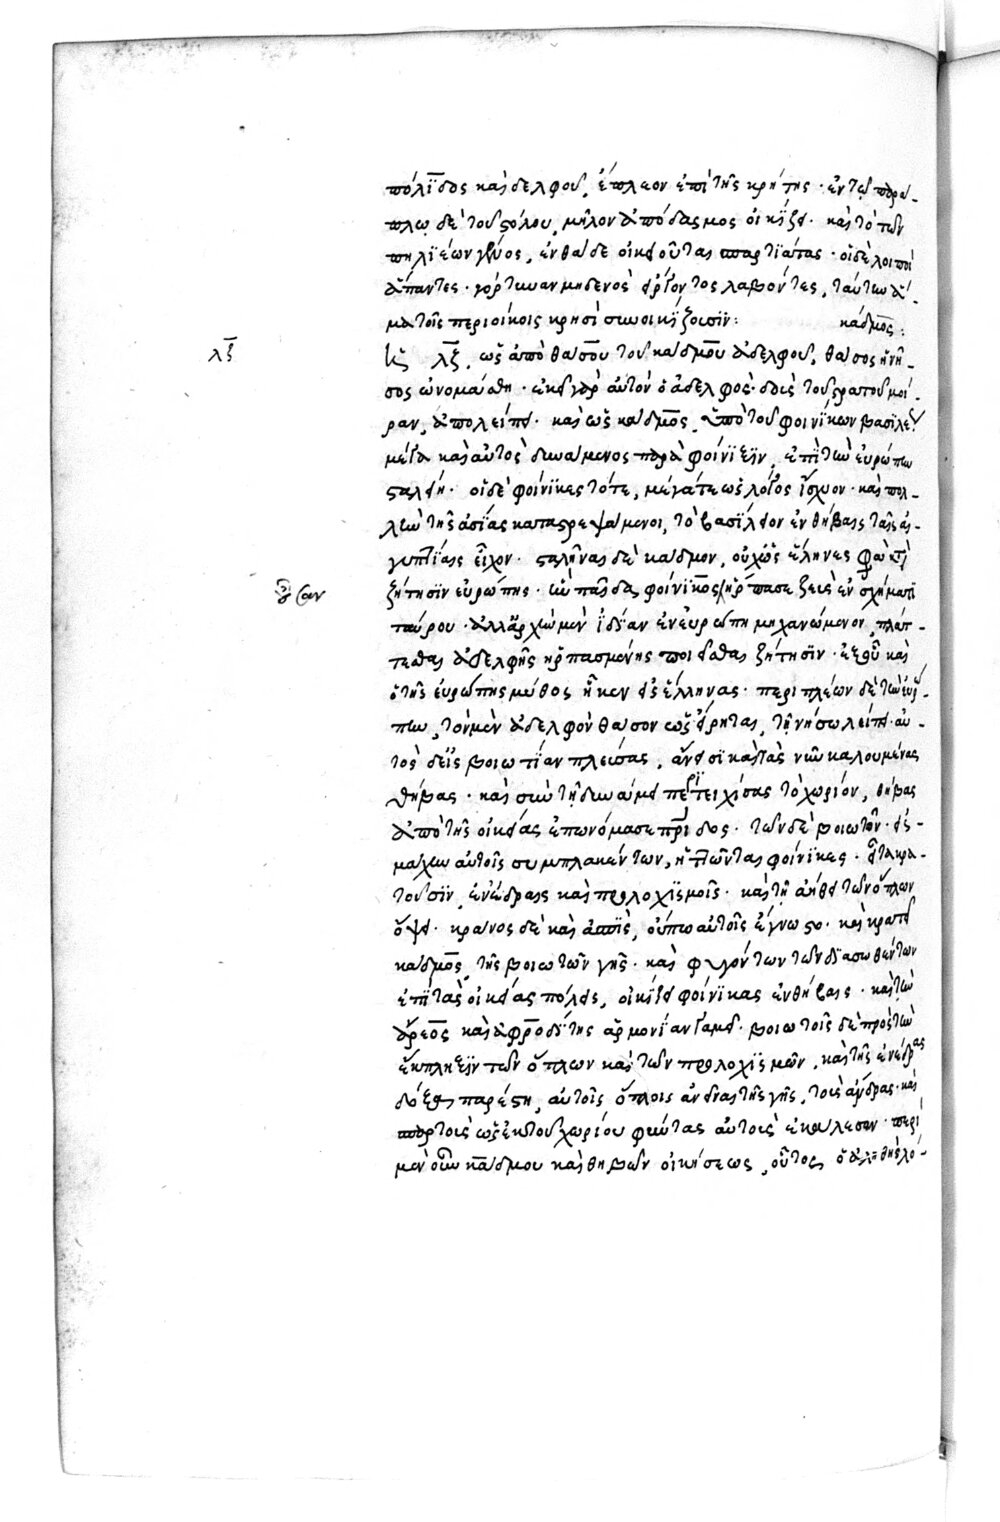 πόλϊδος καὶ δελφοῦ, ἔπλεον ἐπὶ τῆς κρήτης· ἐν τῶ παρά-
πλω δὲ τοῦ στόλου, μῆλον ἀπόδασμος οἰκίζει· καὶ τὸ τῶν
πηλϊέων γένος, ἐνθάδε οἰκειοῦται σπαρτϊάταις· οἱ δὲ λοιποὶ
ἅπαντες· γόρτυναν μηδενὸς εἴργοντος λαβόντες, ταύτην ἅ-
μα τοῖς περιοίκοις κρησὶ συνοικίζουσϊν:
κάδμος:
λζ
λζ, ὡς ἀπὸ θάσου τοῦ κάδμου ἀδελφοῦ, θάσος ἡ νῆ-
σος ὠνομάσθη· ἐκεῖ γὰρ αὐτὸν ὁ ἀδελφὸς· δοὺς τοῦ στρατοῦ μοῖ-
ραν, ἀπολείπει· καὶ ὡς κάδμος, ὑπὸ τοῦ φοινίκων βασϊλέως
μέγα καὶ αὐτὸς δυνάμενος παρὰ φοίνιξϊν, ἐπὶ τὴν εὐρώπην
σταλείη· οἱ δὲ φοίνϊκες τότε, μέγα τε ὡς λόγος ἴσχυον· καὶ πολ-
λὴν τῆς ἀσίας καταστρεψάμενοι, τὸ βασίλειον ἐν θήβαις ταῖς αἰ-
γυπτϊαις εἶχον· σταλῆναι δὲ κάδμον, οὐχ ὡς ἕληνες φασὶ κατὰ
ζήτησϊν εὐρώπης· ἣν παῖδα φοίνϊκος οὖσαν ἥρπασε ζεὺς ἐν σχήματϊ
οὖσαν
ταύρου· ἀλλ' ἀρχὴν μὲν ἰδίαν ἐν εὐρώπη μηχανώμενον, πλάτ-
τεσθαι ἀδελφῆς ἡρπασμένης ποιεῖσθαι ζήτησϊν· ἐξ οὗ καὶ
ὁ τῆς εὐρώπης μῦθος ἧκεν εἰς ἕλληνας· περιπλέων δὲ τὴν εὐρώ-
πην, τὸν μὲν ἀδελφὸν θάσον ὡς εἴρηται, τῆ νήσω λείπει· αὐ-
τὸς δ' εἰς βοιωτίαν πλεύσας, ἄνεισϊ καὶ τὰς νῦν καλουμένας
θήβας· καὶ σὺν τῆ δυνάμει περϊτειχίσας τὸ χωρίον, θήβας
ἀπὸ τῆς οἰκείας ἐπωνόμασε πατρίδος· τῶν δὲ βοιωτῶν· εἰς
μάχην αὐτοῖς συμπλακέντων, ἡττῶνται φοίνϊκες· εἶτα κρα-
τοῦσϊν, ἐνέδραις καὶ προλοχϊσμοῖς· καὶ τῆ ἀήθει τῶν ὅπλων
ὄψει· κράνος δὲ καὶ ἀσπϊς, οὔπω αὐτοῖς ἔγνωστο· καὶ κρατεῖ
κάδμος, τῆς βοιωτῶν γῆς· καὶ φυγόντων τῶν δϊασωθέντων
ἐπὶ τὰς οἰκείας πόλεις, οἰκίζει φοίνϊκας ἐν θήβαις· καὶ τὴν
ἄρεος καὶ ἀφροδϊτης ἁρμονίαν γαμεῖ· βοιωτοῖς δὲ πρὸς τὴν
ἔκπληξϊν τῶν ὅπλων καὶ τῶν προλοχϊσμῶν, καὶ τῆς ἐνέδρας
δόξα παρέστη, αὐτοῖς ὅπλοις ἀνεῖναι τῆς γῆς, τοὺς ἄνδρας· καὶ
σπαρτοὺς ὡς ἐκ τοῦ χωρίου φύντας αὐτοὺς ἐκάλεσαν· περὶ
μὲν οὖν κάδμου καὶ θηβῶν οἰκήσεως, οὗτος ὁ ἀληθὴς λό-